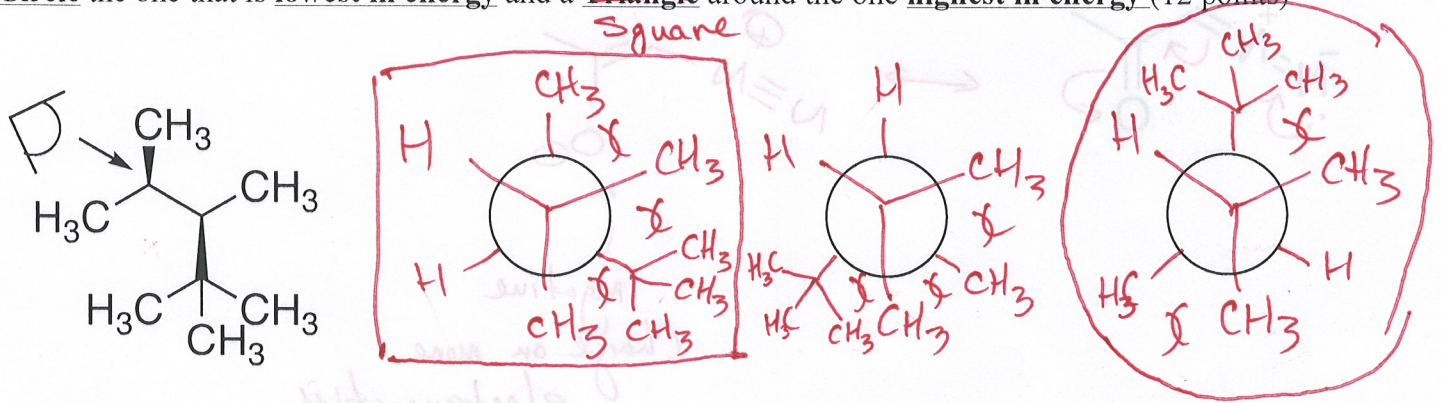 the one that is lowest in energy and a Triangle around the one highest in energy (12 points)
Square
CH3
H3C
CH3
H3C
CH3
CH3
CH3
H
CH3
H
CH3
CH3
CH3
CH3
H
H
CH3
H3C
H3C
CH3
CH3
CH3
CH3
H3C
CH3
H
CH3
H3C
CH3
H